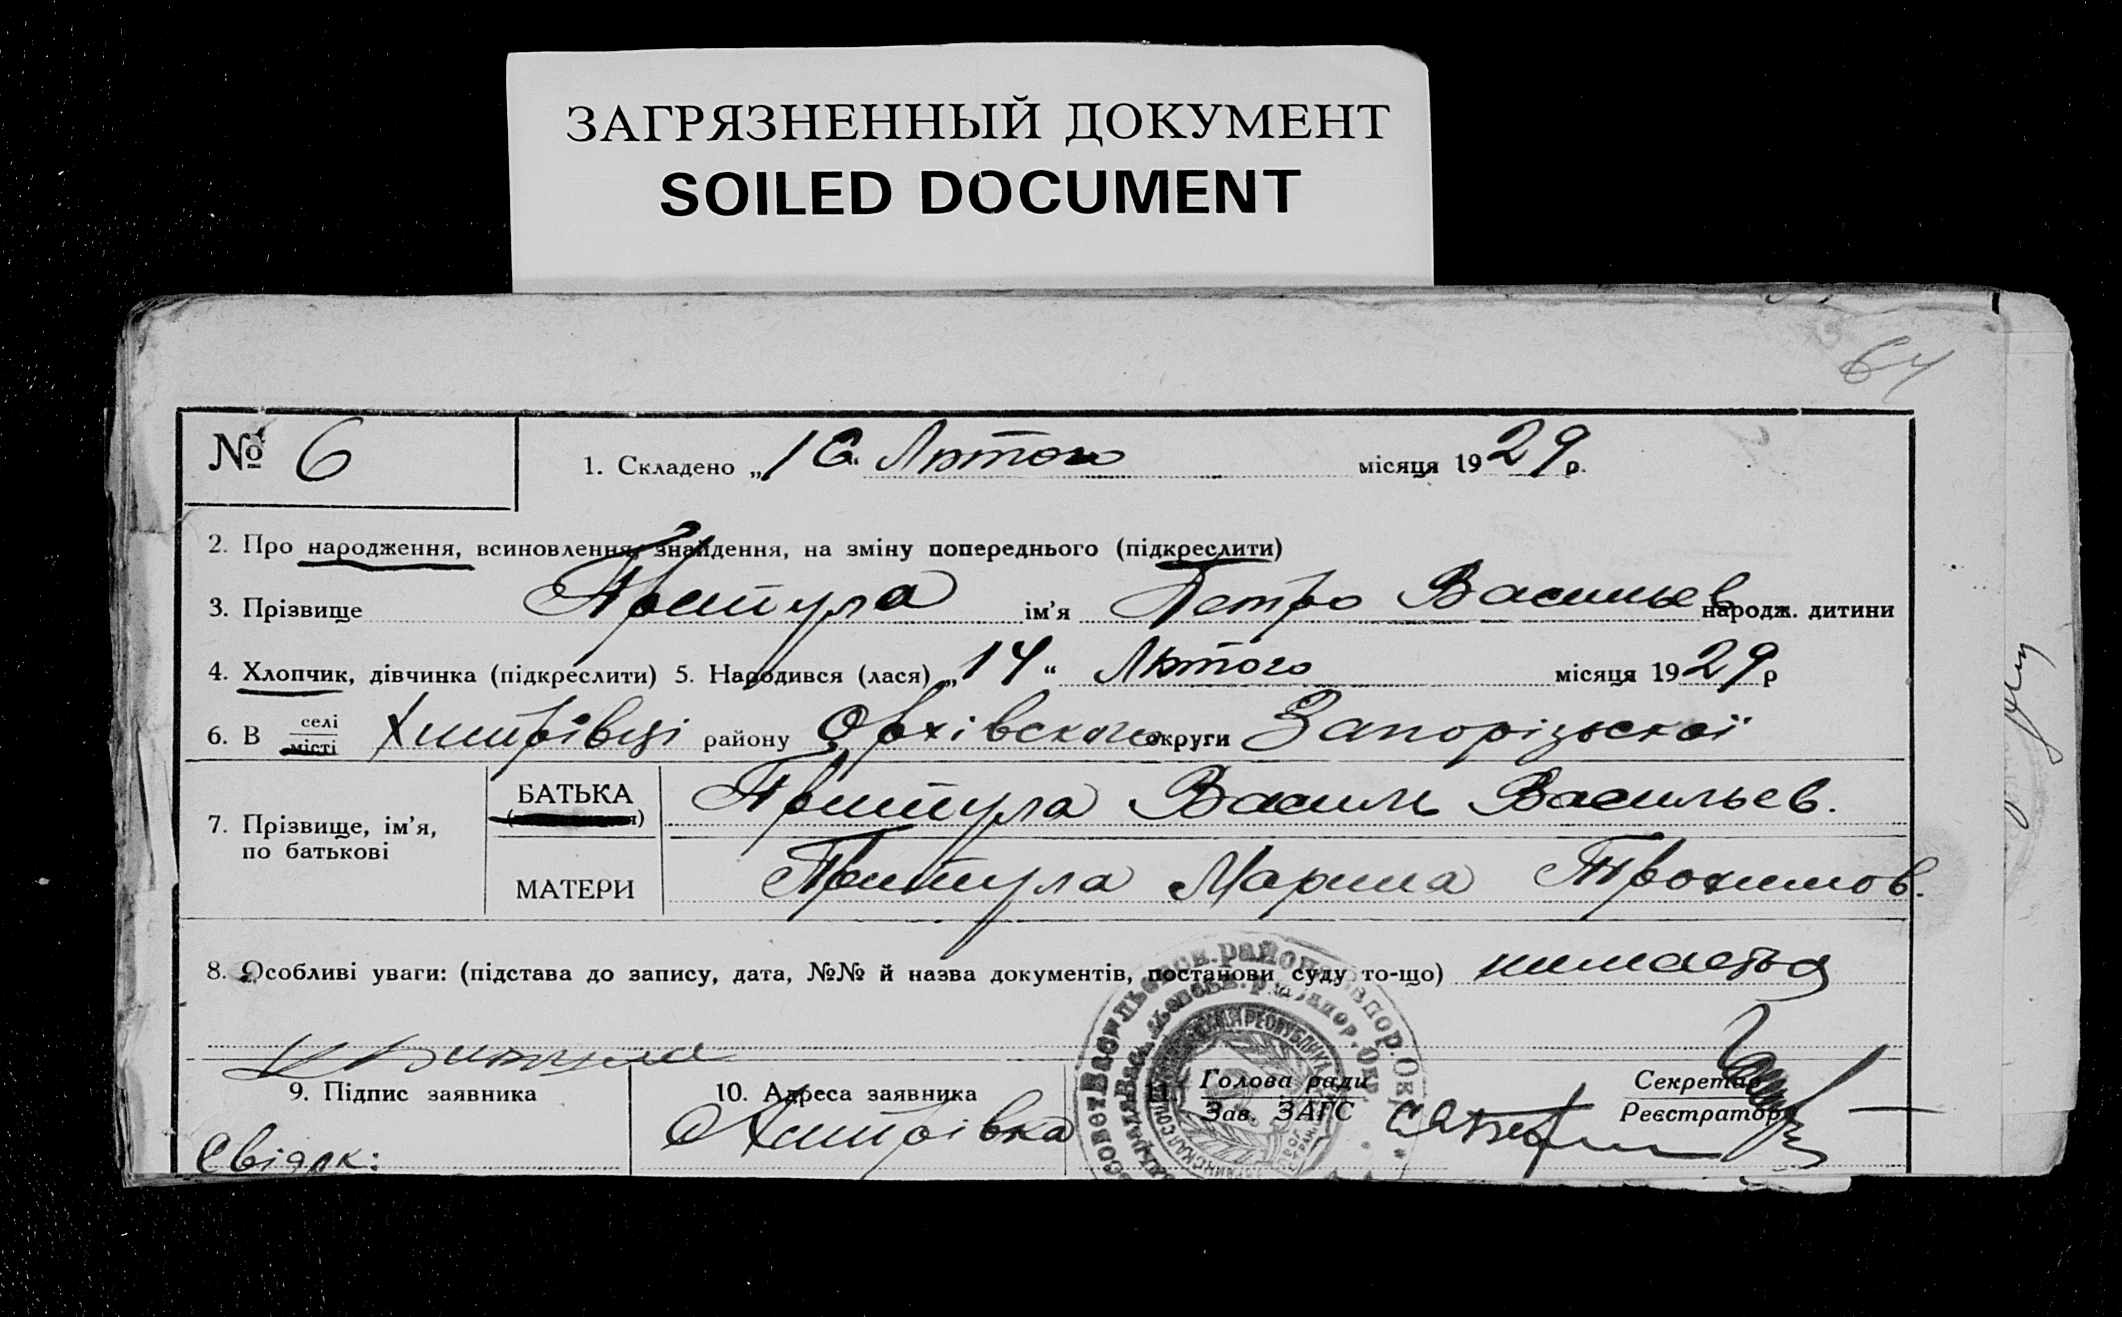 ЗАГРЯЗНЕННЫЙ ДОКУМЕНТ
SOILED DOCUMENT
64
№ 6
1. Складено „16“ Лютого місяця 1929 р.
2. Про народження, всиновлення, знайдення, на зміну попереднього (підкреслити)
3. Прізвище Притула ім’я Петро Васильев народж. дитини
4. Хлопчик, дівчинка (підкреслити) 5. Народився (лася) „14“ Лютого місяця 1929 р
6. В селі місті району Оріхівского округи Запорізьскої
7. Прізвище, ім’я, по батькові
БАТЬКА Притула Василь Васильев.
МАТЕРИ Притула Марина Трохимов.
8. Особливі уваги: (підстава до запису, дата, №№ й назва документів, постанови суду то-що)
9. Підпис заявника
10. Адреса заявника
11. Голова ради
Зав. ЗАГС
Секретар
Реєстратор
Свідок: